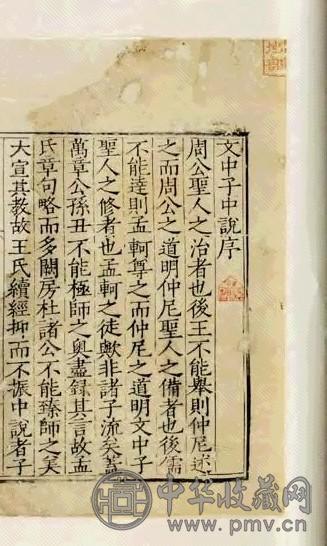 文中子中說序
周公聖人之治者也後王不能舉則仲尼述
之而周公之道明仲尼聖人之備者也後儒
不能達則孟軻尊之而仲尼之道明文中子
聖人之修者也孟軻之徒歟非諸子流矣蓋
萬章公孫丑不能極師之奧盡錄其言故孟
氏章句略而多闕房杜諸公不能臻師之美
大宣其教故王氏續經抑而不振中說者子
中华收藏网
www.pmv.cn